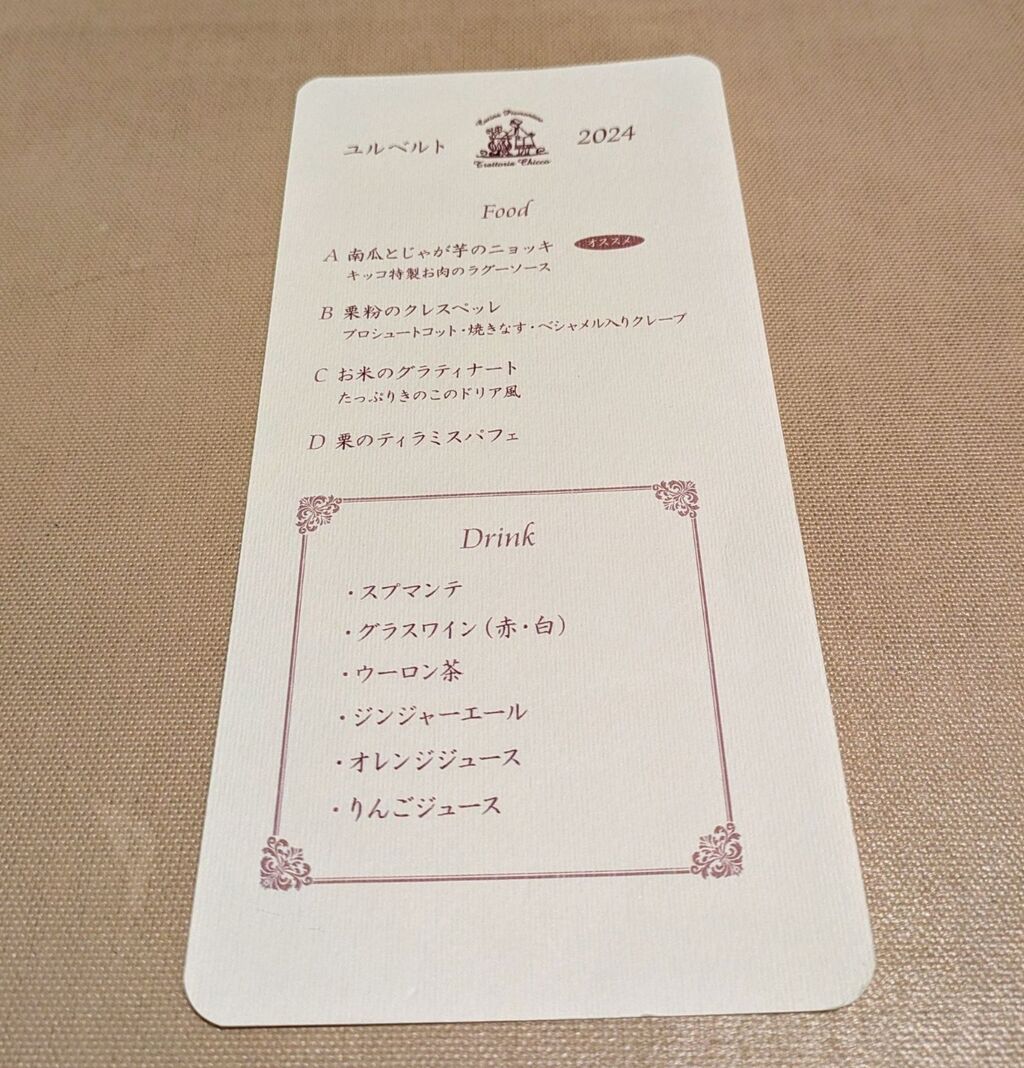 ユルベルト
Cucina Fiorentina
Trattoria Chicco
2024
Food
A 南瓜とじゃが芋のニョッキ オススメ
キッコ特製お肉のラグーソース
B 栗粉のクレスペッレ
プロシュートコット・焼きなす・ベシャメル入りクレープ
C お米のグラティナート
たっぷりきのこのドリア風
D 栗のティラミスパフェ
Drink
・スプマンテ
・グラスワイン（赤・白）
・ウーロン茶
・ジンジャーエール
・オレンジジュース
・りんごジュース